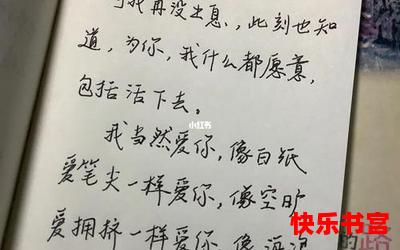 我再没出息，此刻也知
道，为你，我什么都愿意，
包括活下去。
小红书
我当然爱你，像白纸
爱笔尖一样爱你，像空旷
爱拥挤一样爱你，像
快乐书宫
路